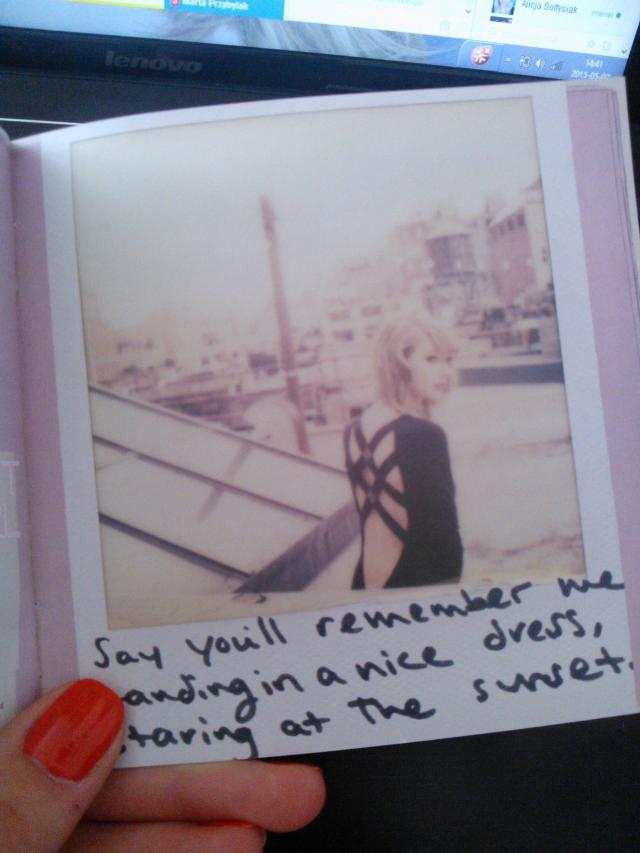 Marta Przybylak
Alicja Sołtysiak
Internet
lenovo
14:41
Say you'll remember me
anding in a nice dress,
taring at the sunset.